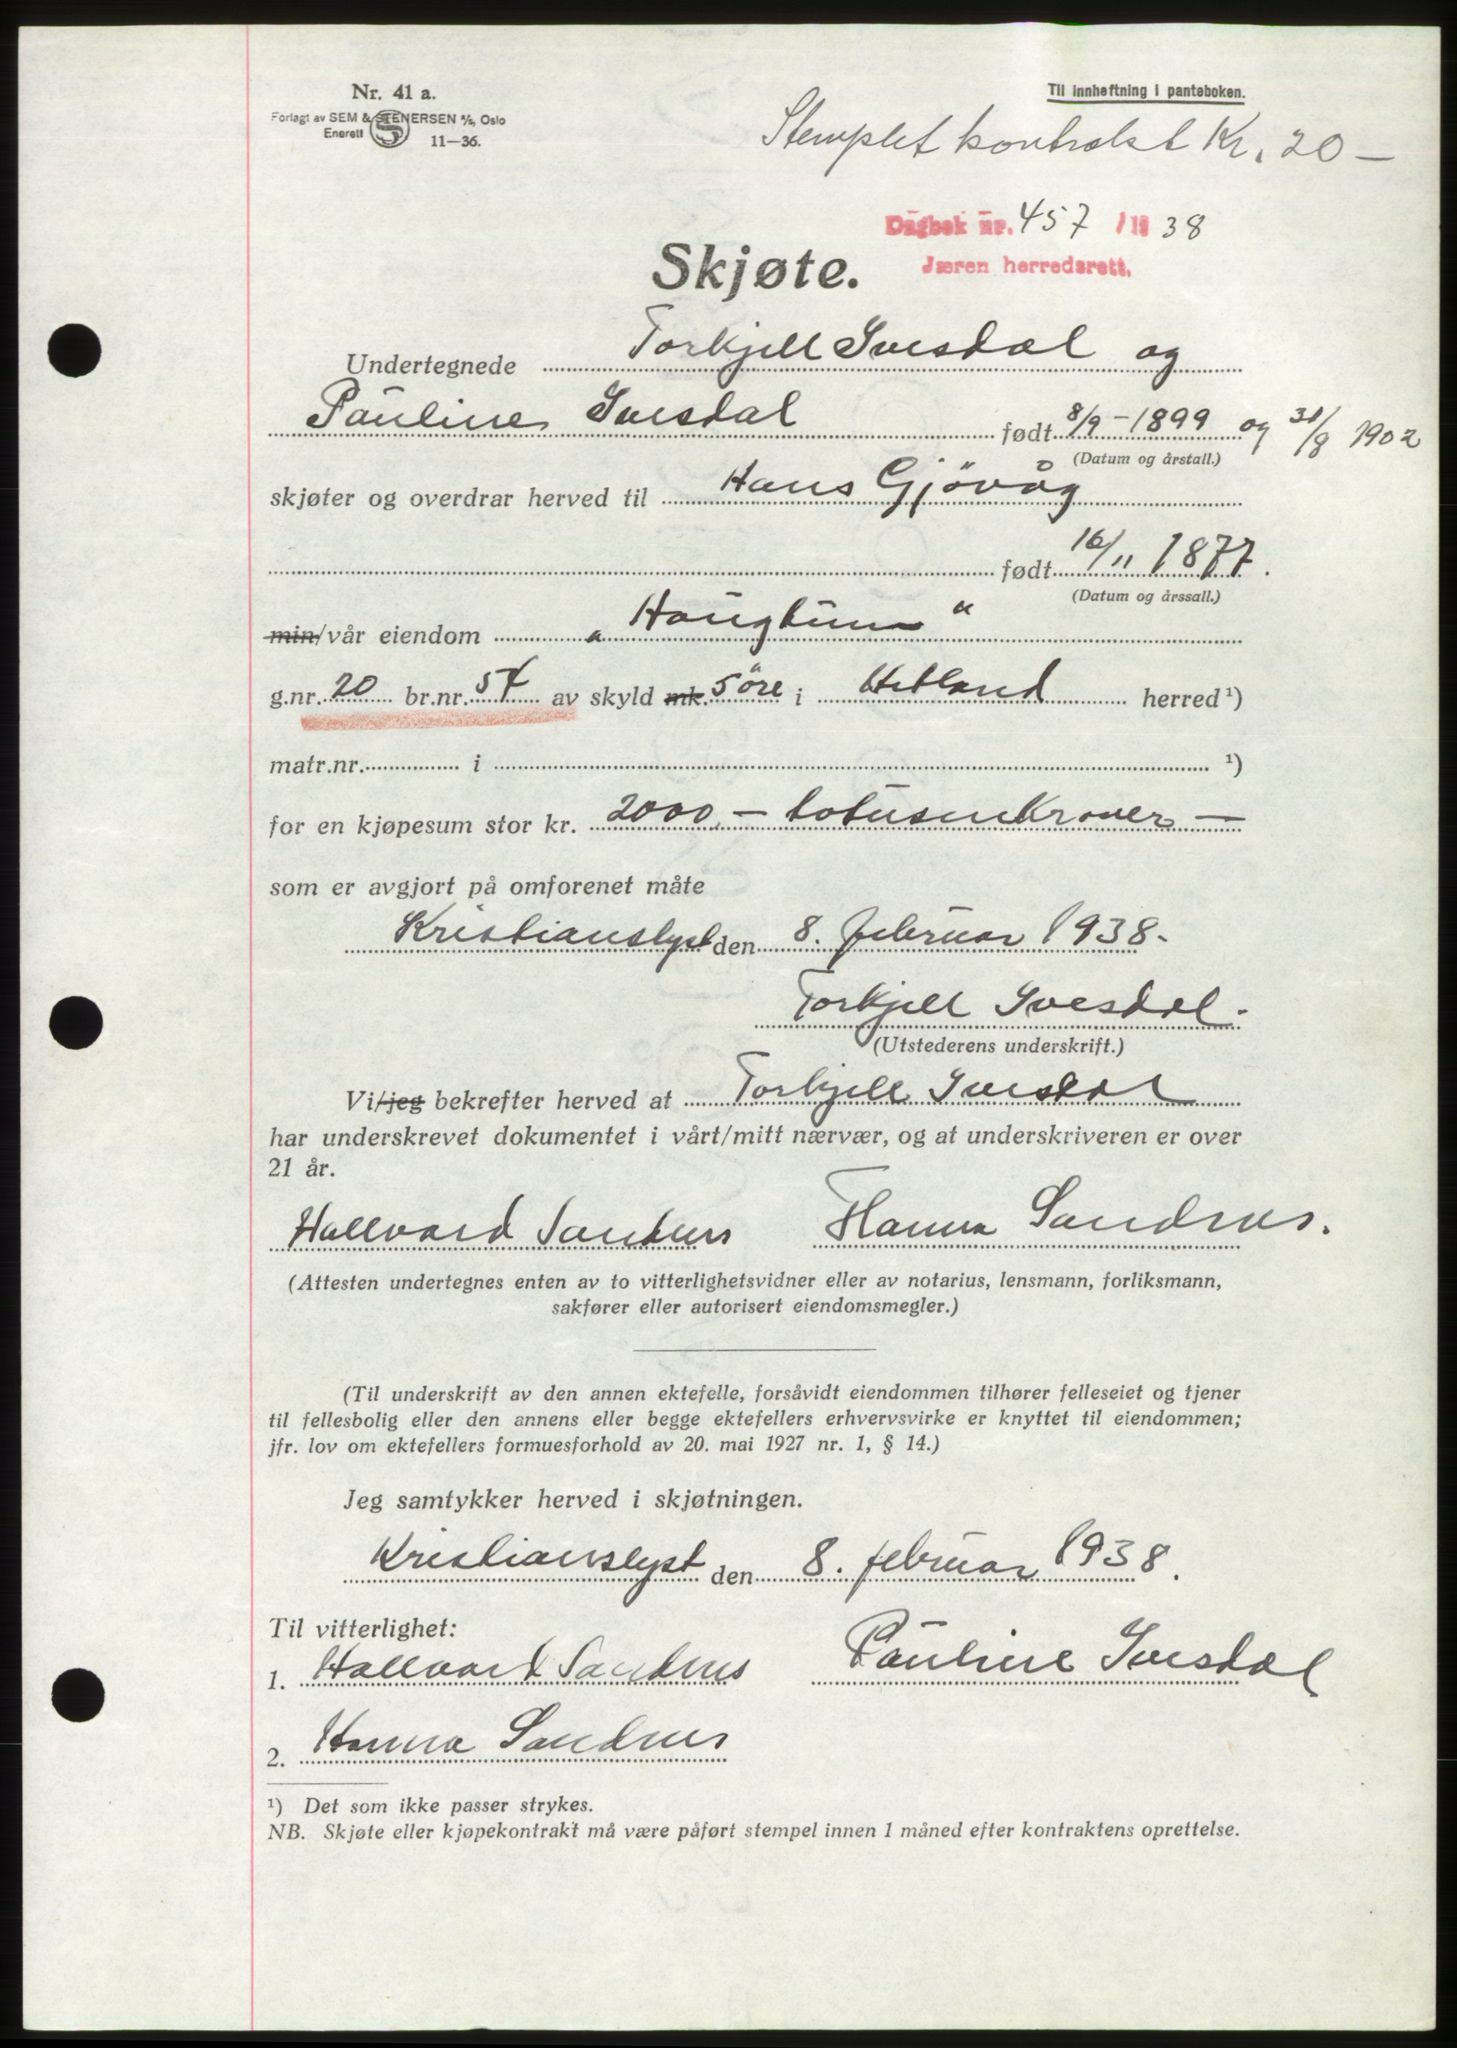 Nr. 41 a.
Forlagt av SEM & STENERSEN A/S, Oslo
Enerett S 11-36.
Til innheftning i panteboken.
Stemplet kontrakt Kr. 20 —
Dagbok nr. 457 / 19 38
Jæren herredsrett.
Skjøte.
Undertegnede Torkjell Ivesdal og
Pauline Ivesdal født 8/9 - 1899 og 31/8 1902
(Datum og årstall.)
skjøter og overdrar herved til Hans Gjövåg
født 16/11 1877.
(Datum og årssall.)
min/vår eiendom „Haugtun“
g.nr. 20 br.nr. 54 av skyld mk. 5 öre i Hetland herred ¹)
matr.nr. i ¹)
for en kjøpesum stor kr. 2000, — totusenkroner —
som er avgjort på omforenet måte
Kristianslyst den 8. februar 1938.
Torkjell Ivesdal.
(Utstederens underskrift.)
Vi/jeg bekrefter herved at Torkjell Ivesdal
har underskrevet dokumentet i vårt/mitt nærvær, og at underskriveren er over
21 år.
Hallvard Sandnes Hanna Sandnes.
(Attesten undertegnes enten av to vitterlighetsvidner eller av notarius, lensmann, forliksmann,
sakfører eller autorisert eiendomsmegler.)
(Til underskrift av den annen ektefelle, forsåvidt eiendommen tilhører felleseiet og tjener
til fellesbolig eller den annens eller begge ektefellers erhvervsvirke er knyttet til eiendommen;
jfr. lov om ektefellers formuesforhold av 20. mai 1927 nr. 1, § 14.)
Jeg samtykker herved i skjøtningen.
Kristianslyst den 8. februar 1938.
Til vitterlighet:
1. Hallvard Sandnes Pauline Ivesdal
2. Hanna Sandnes
¹) Det som ikke passer strykes.
NB. Skjøte eller kjøpekontrakt må være påført stempel innen 1 måned efter kontraktens oprettelse.